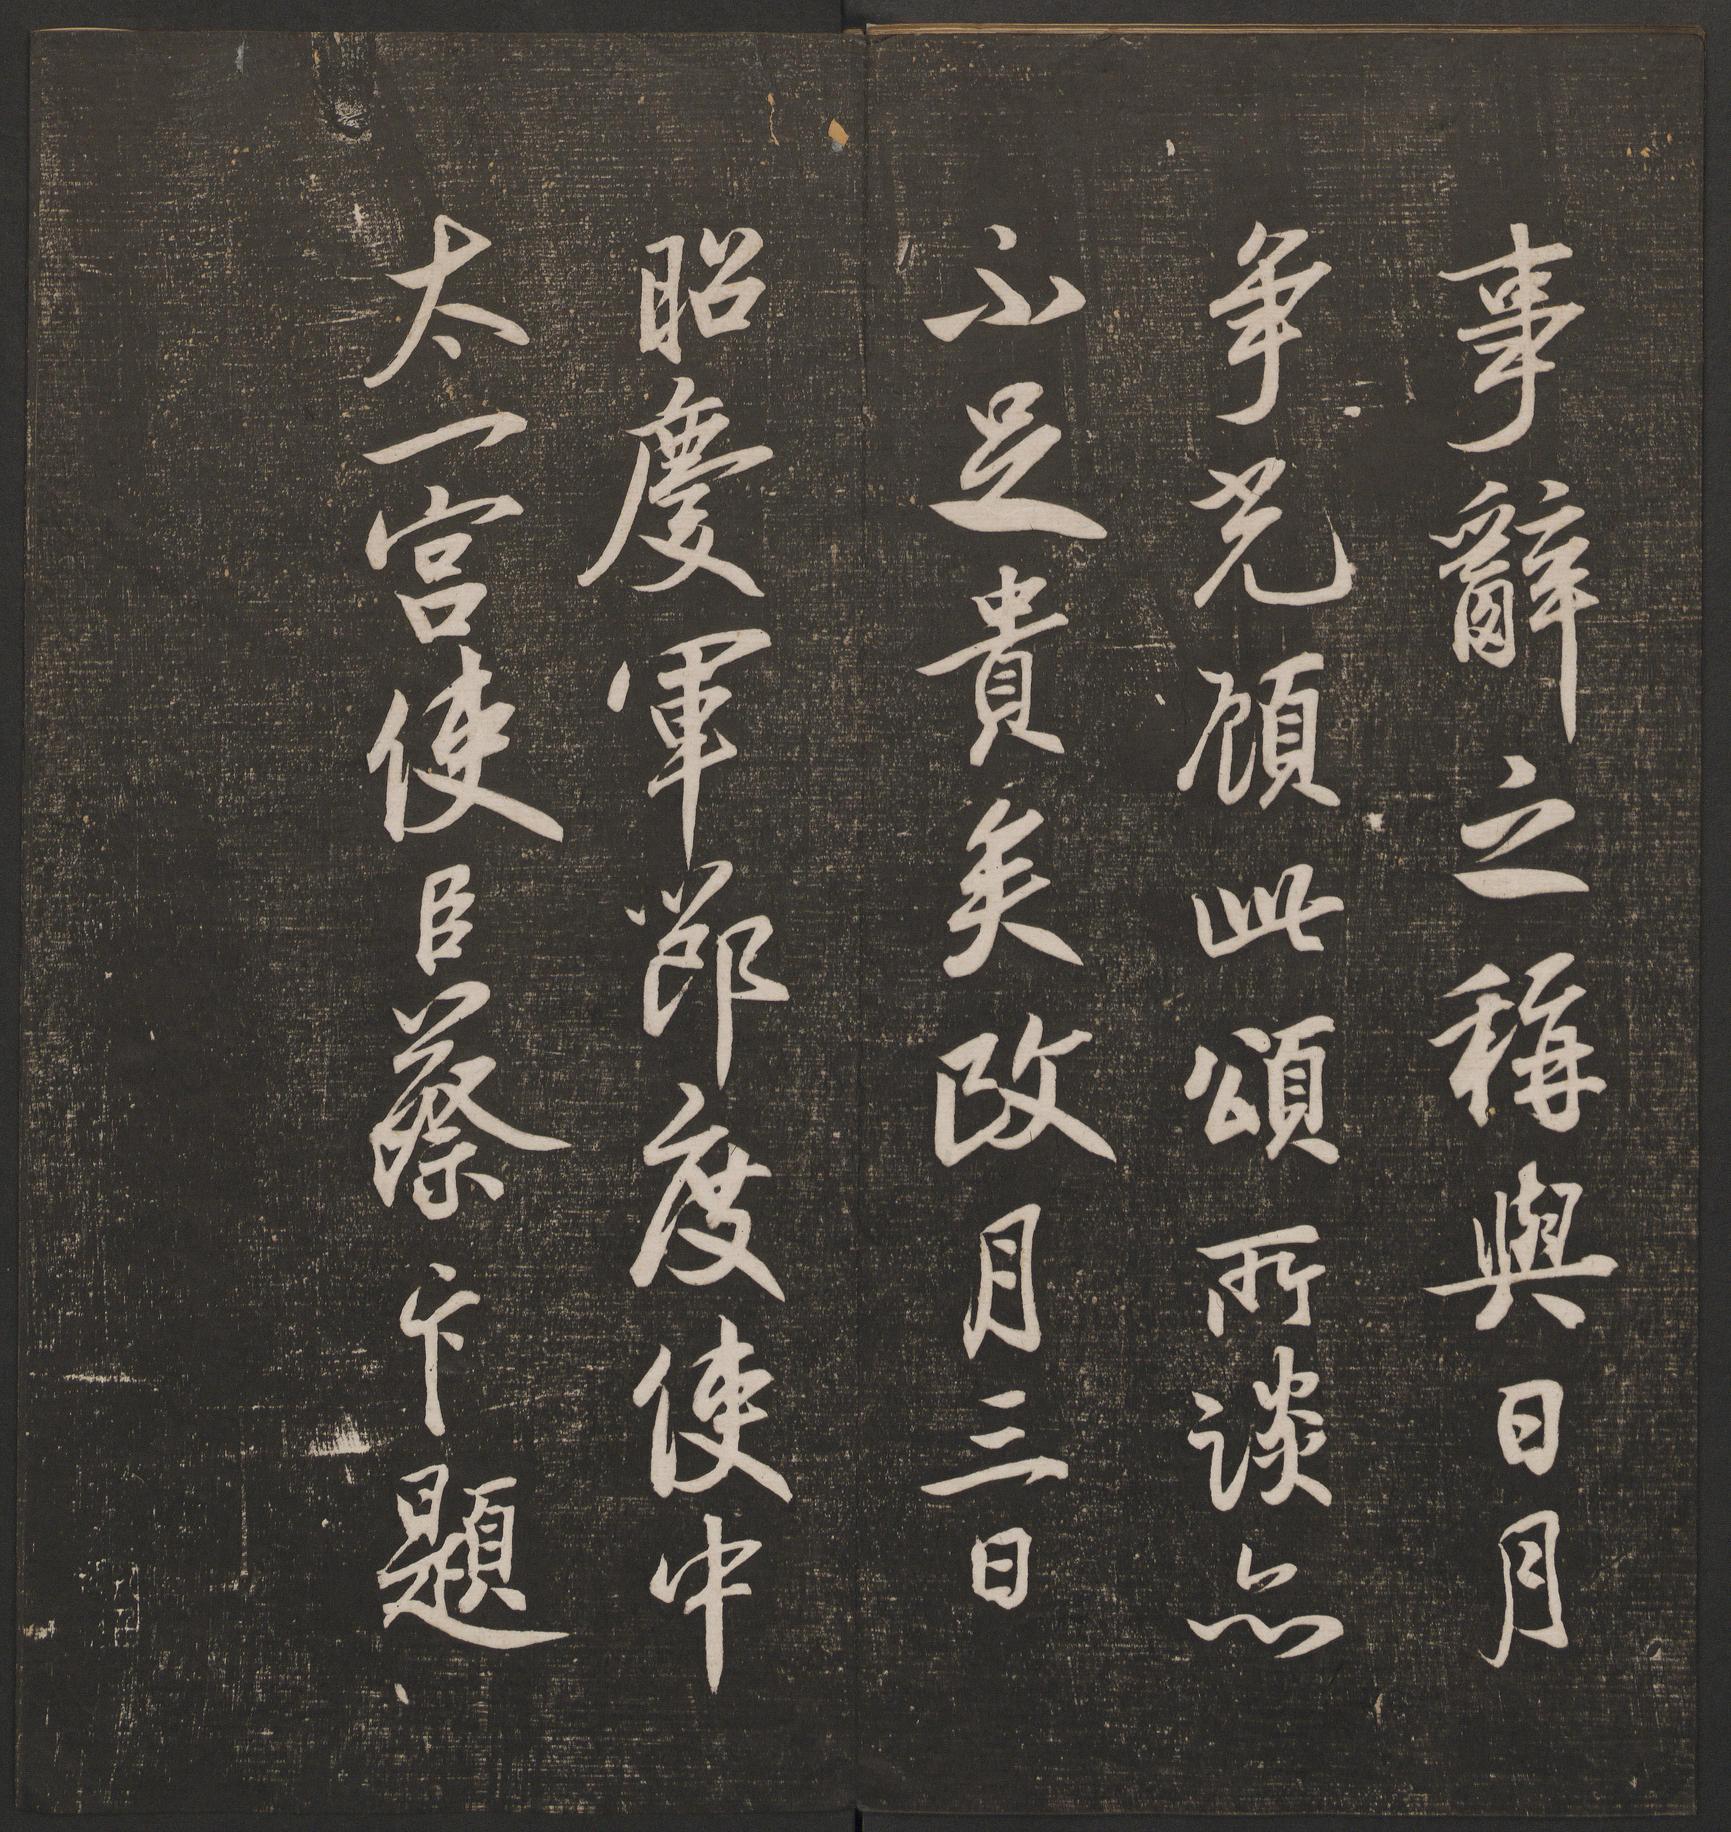 事辭之稱與日月
争光顧此頌所談亦
不足貴矣政月三日
昭慶軍節度使中
太一宮使臣蔡卞題